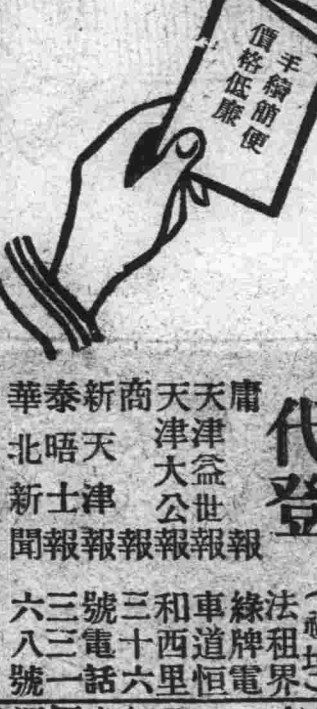 手續簡便
價格低廉
代登
庸報
天津益世報
天津大公報
商報
新天津報
泰晤士報
華北新聞
法租界
綠牌電
車道恒
和西里
三十六
號電話
三三一
六八號